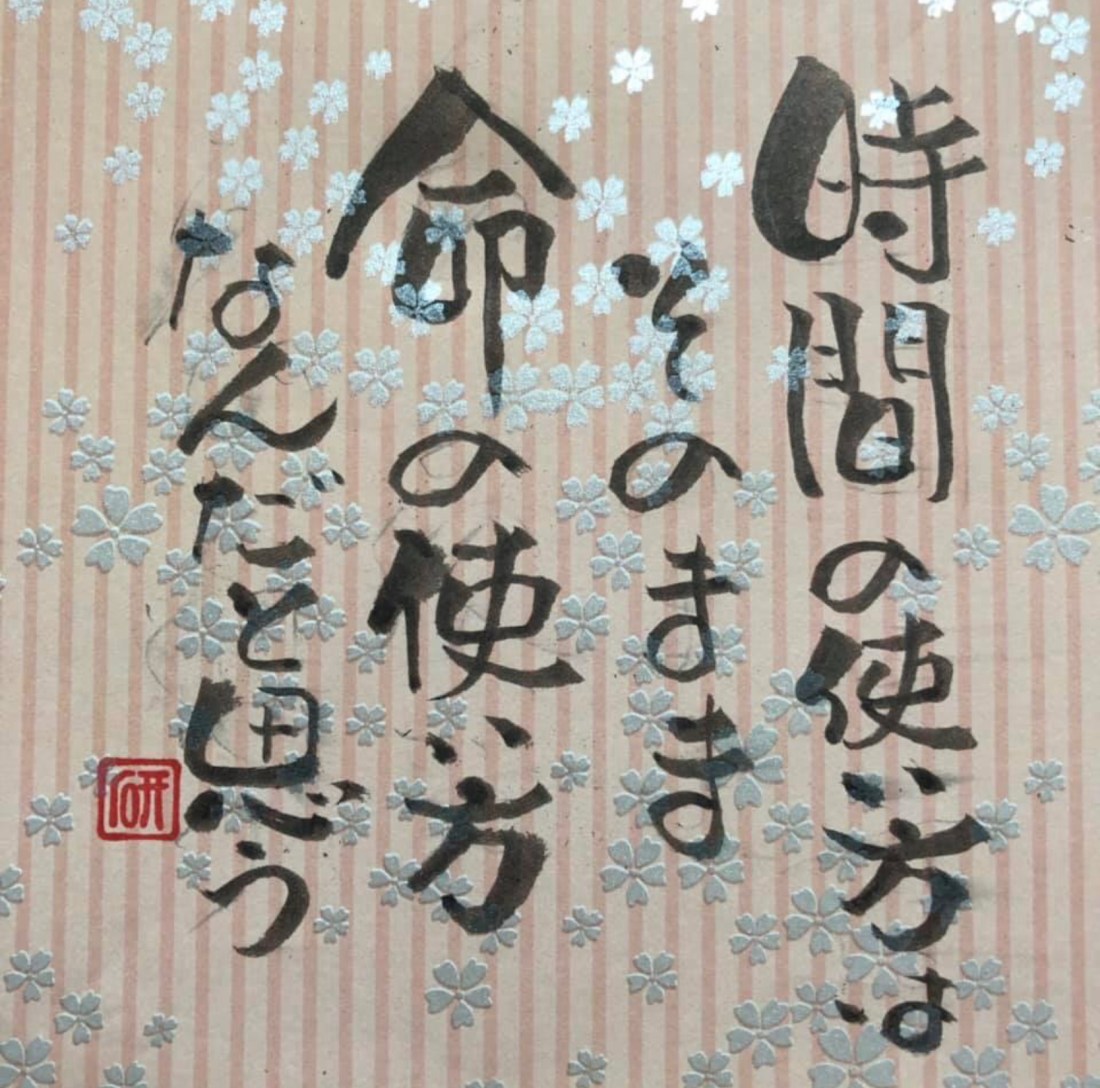 時間の使い方は
そのまま
命の使い方
なんだと思う
研